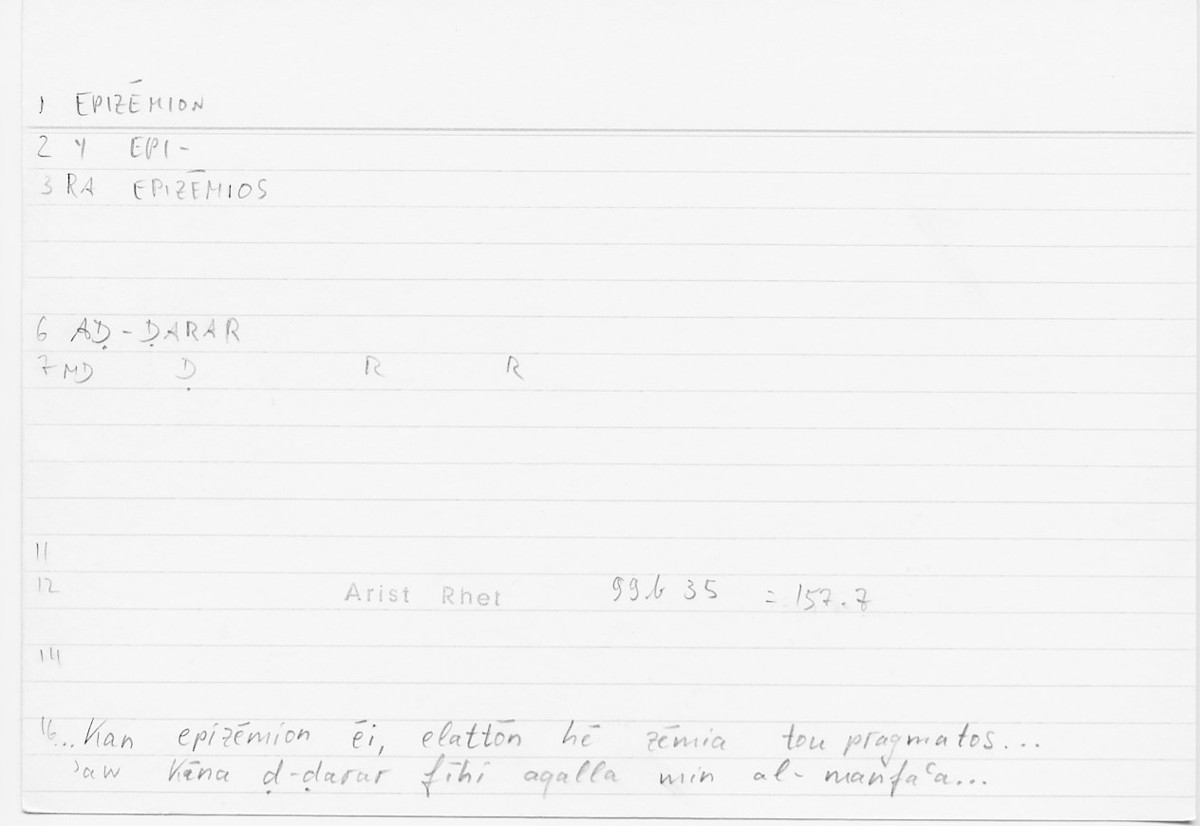 1 EPIZĒMION
2 Y EPI-
3 RA EPIZĒMIOS
6 AḌ-ḌARAR
7 MD Ḍ R R
11
12 Arist Rhet 99b 35 = 157.7
14
16 ...kan epizēmion ēi, elattōn hē zēmia tou pragmatos...
ʾaw kāna ḍ-ḍarar fīhi aqalla min al-manfaʿa...